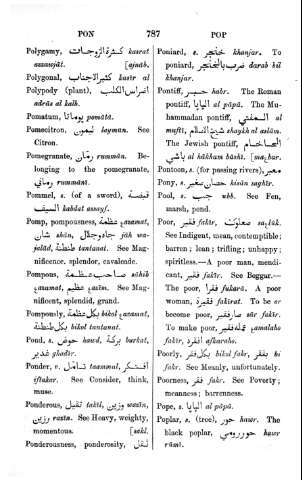 PON 787 POP
Polygamy, كثرة الزوجات kasrat
azzawját. [ajnáb.
Polygonal, كثير الاجناب kasír al
Polypody (plant), اضراس الكلب
adrás al kalb.
Pomatum, پوماتا pomáta.
Pomecitron, ليمون laymun. See
Citron.
Pomegranate, رمان rummán. Be-
longing to the pomegranate,
رماني rummání.
Pommel, s. (of a sword), قبضة
السيف kabdat assayf.
Pomp, pompousness, عظمة azamat,
شان shán, جاه وجلال jáh wa-
jalád, طنطنة tantanat. See Mag-
nificence, splendor, cavalcade.
Pompous, صاحب عظمة sáhib
azamat, عظيم azím. See Mag-
nificent, splendid, grand.
Pompously, بكل عظمة bikol azamat,
بكل طنطنة bikol tantanat.
Pond, s. حوض hawd, بركة barkat,
غدير ghadír.
Ponder, تامل taammal, افتكر
iftakar. See Consider, think,
muse.
Ponderous, ثقيل takíl, وزين wazín,
رزين razín. See Heavy, weighty,
momentous. [sakl.
Ponderousness, ponderosity, ثقل
Poniard, s. خنجر khanjar. To
poniard, ضرب بالخنجر darab bil
khanjar.
Pontiff, حبر habr. The Roman
pontiff, البابا al pápá. The Mu-
hammadan pontiff, المفتي al
muftí, شيخ الاسلام shaykh al aslám.
The Jewish pontiff, الحاخام
باشي al hákhám báshí. [maabar.
Pontoon, s. (for passing rivers), معبر
Pony, s. حصان صغير hisán saghír.
Pool, s. وبب wbb. See Fen,
marsh, pond.
Poor, فقير fakír, صعلوك saalúk.
See Indigent, mean, contemptible;
barren; lean; trifling; unhappy;
spiritless.—A poor man, mendi-
cant, فقير fakír. See Beggar.—
The poor, فقرا fukará. A poor
woman, فقيرة fakírat. To be or
become poor, صار فقير sár fakír.
To make poor, عمله فقير amalaho
fakír, افقره afkaraho.
Poorly, بكل فقر bikol fakr, بفقر bi
fakr. See Meanly, unfortunately.
Poorness, فقر fakr. See Poverty;
meanness; barrenness.
Pope, s. البابا al pápá.
Poplar, s. (tree), حور hawr. The
black poplar, حور رومي hawr
rúmí.